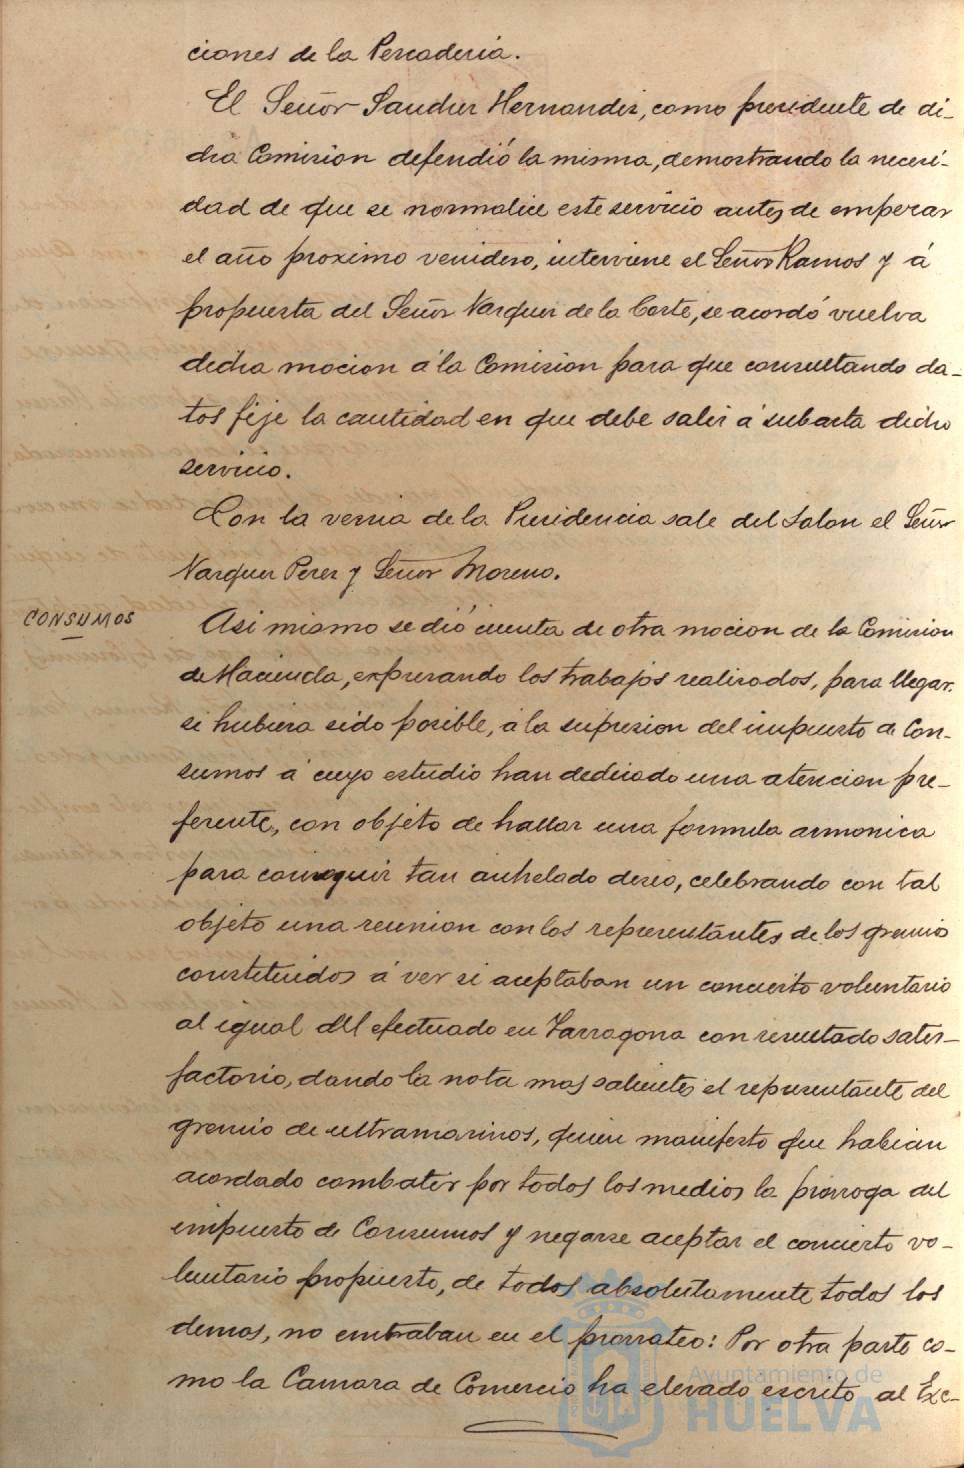 ciones de la Pescaderia.
El Señor Sanchez Hernandez, como presidente de di-
cha Comision defendió la misma, demostrando la necesi-
dad de que se normalice este servicio antes de empezar
el año proximo venidero, interviene el Señor Ramos y á
propuesta del Señor Vazquez de la Corte, se acordó vuelva
dicha mocion á la Comision para que consultando da-
tos fije la cantidad en que debe salir á subasta dicho
servicio.
Con la venia de la Presidencia sale del Salon el Señor
Vazquez Perez y Señor Moreno.
CONSUMOS
Asi mismo se dió cuenta de otra mocion de la Comision
de Hacienda, expresando los trabajos realizados, para llegar
si hubiera sido posible, á la supresion del impuesto de Con-
sumos á cuyo estudio han dedicado una atencion pre-
ferente, con objeto de hallar una fórmula armonica
para conseguir tan anhelado deseo, celebrando con tal
objeto una reunion con los representantes de los gremios
constituidos á ver si aceptaban un concierto voluntario
al igual del efectuado en Tarragona con resultado satis-
factorio, dando la nota mas saliente, el representante del
gremio de ultramarinos, quien manifesto que habian
acordado combatir por todos los medios la prorroga del
impuesto de Consumos y negarse aceptar el concierto vo-
luntario propuesto, de todos absolutamente todos los
demas, no entraban en el prorrateo: Por otra parte co-
mo la Camara de Comercio ha elevado escrito al Exc-
Ayuntamiento de
HUELVA